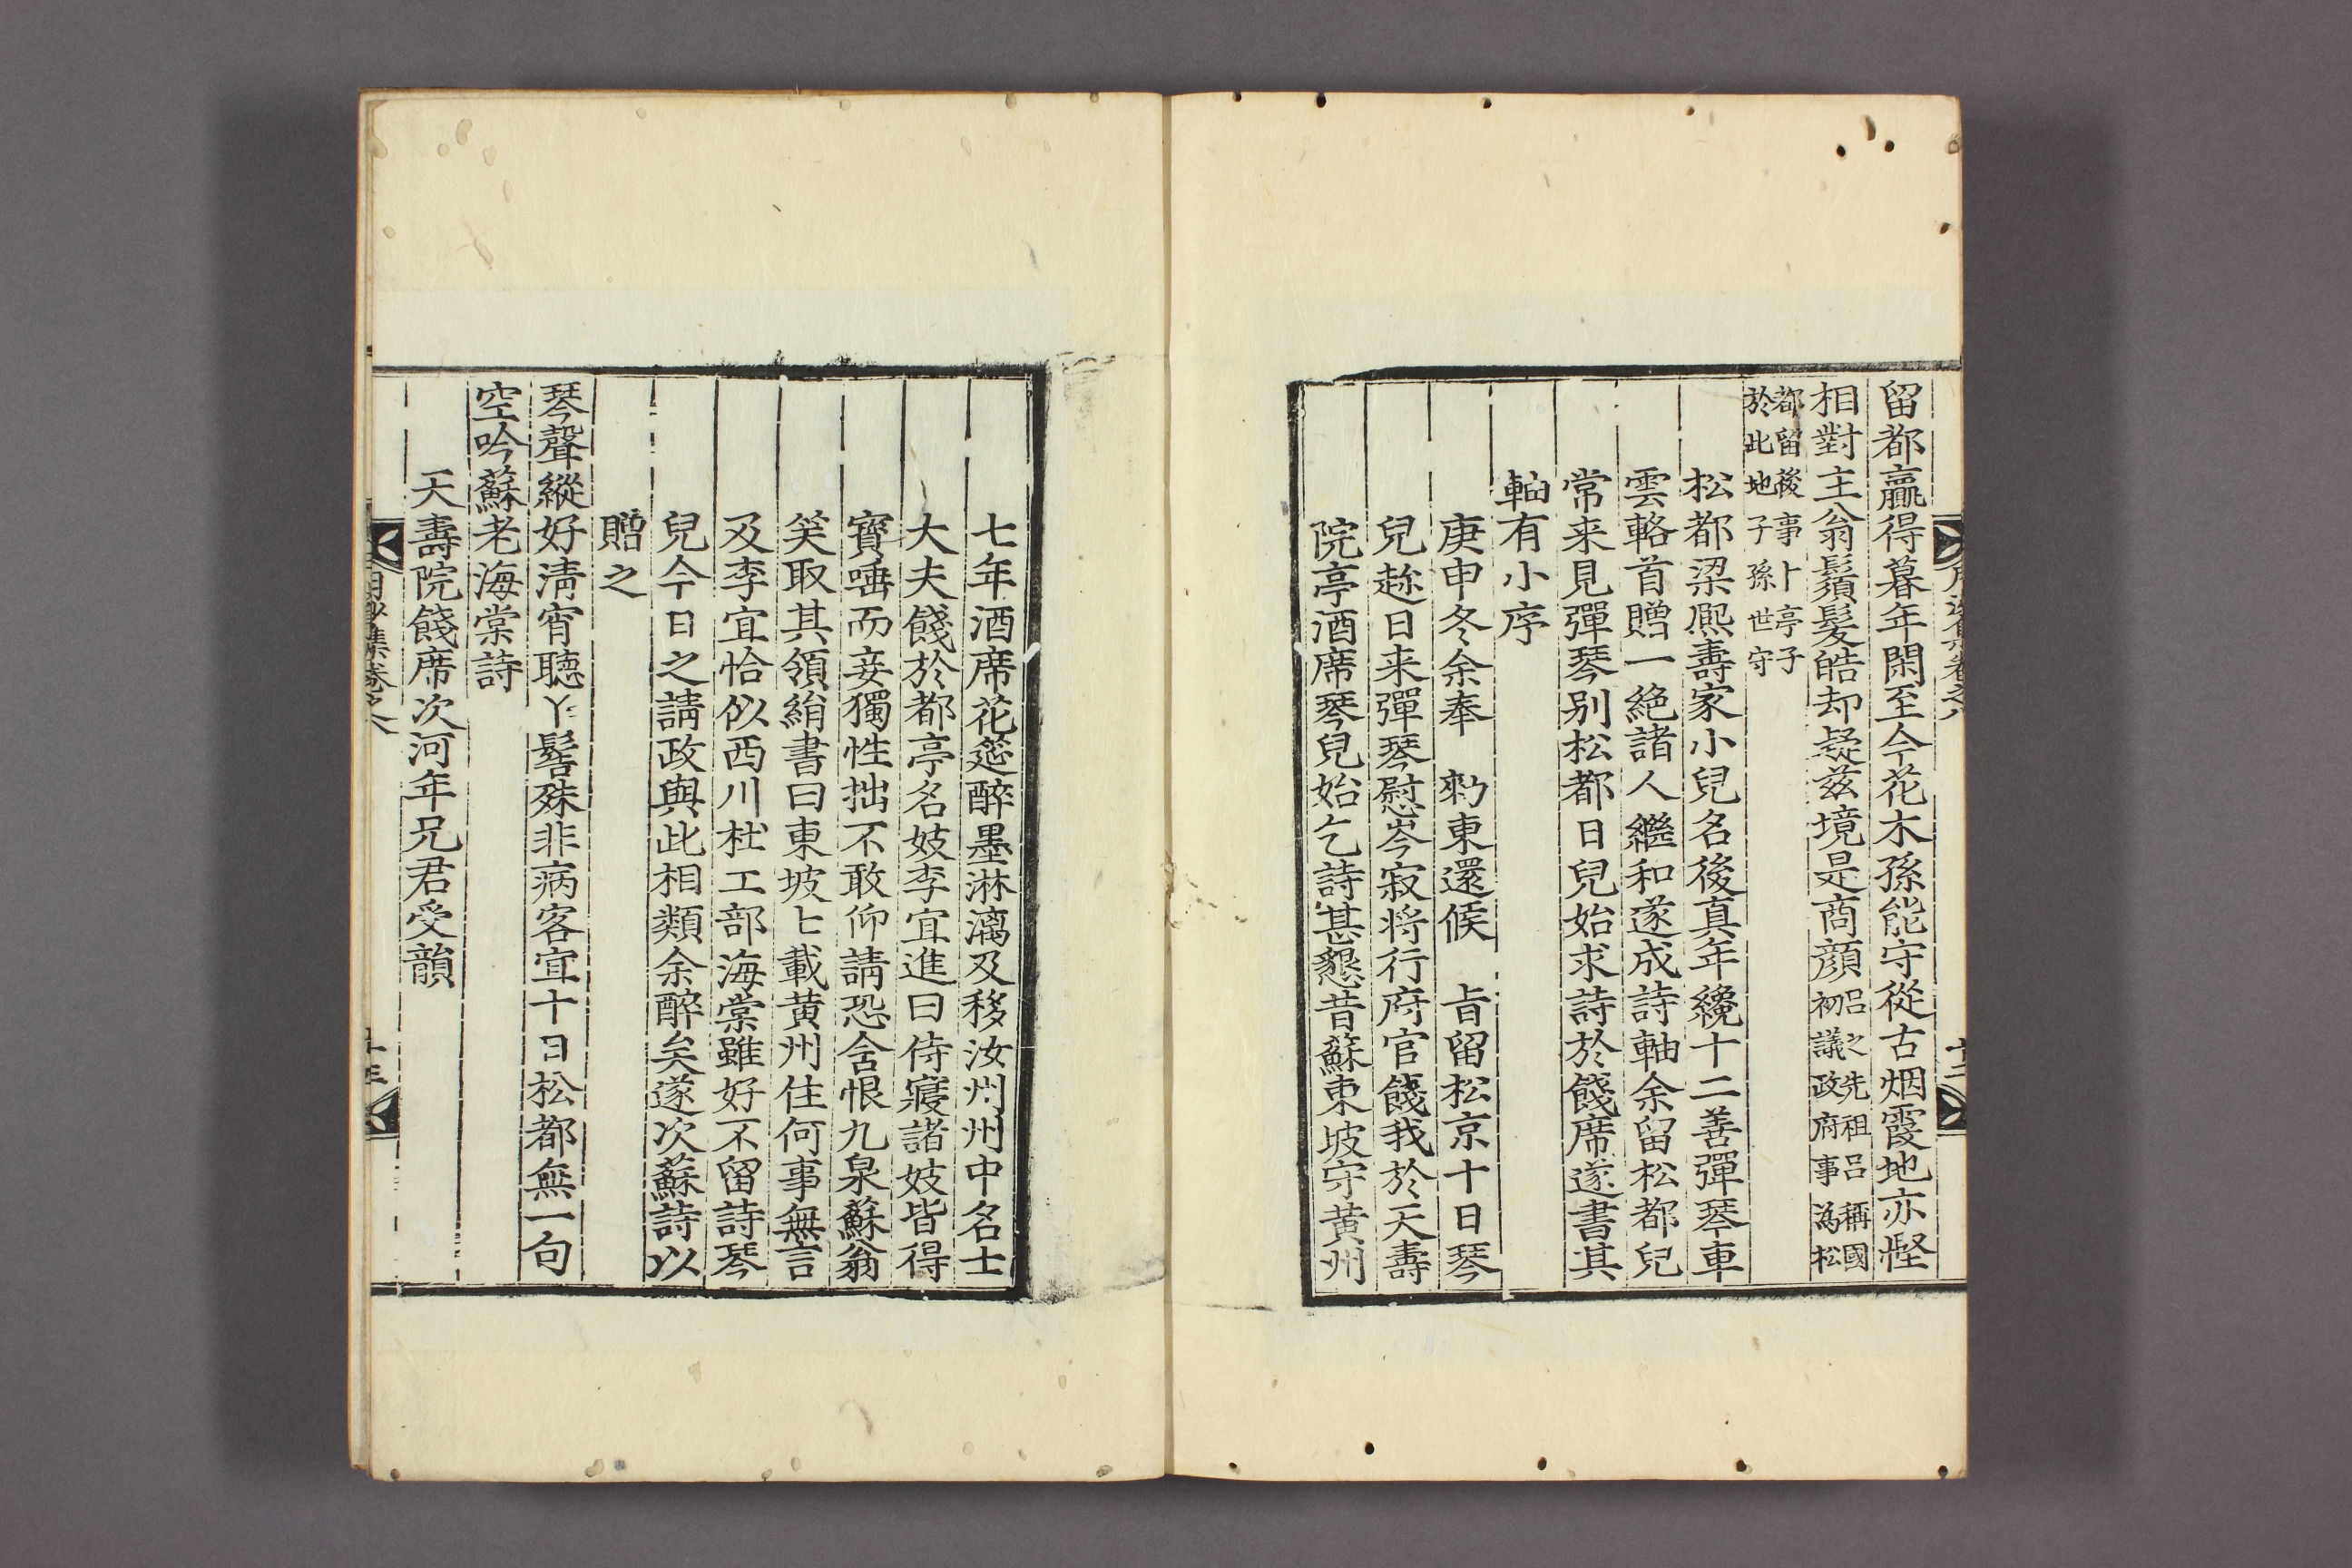 留都贏得暮年閑至今花木孫能守從古烟霞地亦慳
相對主翁鬚髮皓却疑兹境是商顔初議政府事為松
呂之先祖呂稱國
都留後事卜亭子
於此地子孫世守
松都梁熈壽家小兒名後真年纔十二善彈琴車
雲輅首贈一絶諸人繼和遂成詩軸余留松都兒
常来見彈琴别松都日兒始求詩於餞席遂書其
軸有小序
庚申冬余奉　勑東還俟　旨留松京十日琴
兒趂日来彈琴慰岑寂将行府官餞我於天壽
院亭酒席琴兒始乞詩甚懇昔蘇東坡守黄州
七年酒席花筵醉墨淋漓及移汝州州中名士
大夫餞於都亭名妓李宜進曰侍寢諸妓皆得
寳唾而妾獨性拙不敢仰請恐含恨九泉蘇翁
笑取其領絹書曰東坡七載黄州住何事無言
及李宜恰似西川杜工部海棠雖好不留詩琴
兒今日之請政與此相類余醉矣遂次蘇詩以
贈之
琴聲縱好淸宵聽丫髻殊非病客宜十日松都無一句
空吟蘇老海棠詩
天壽院餞席次河年兄君受韻